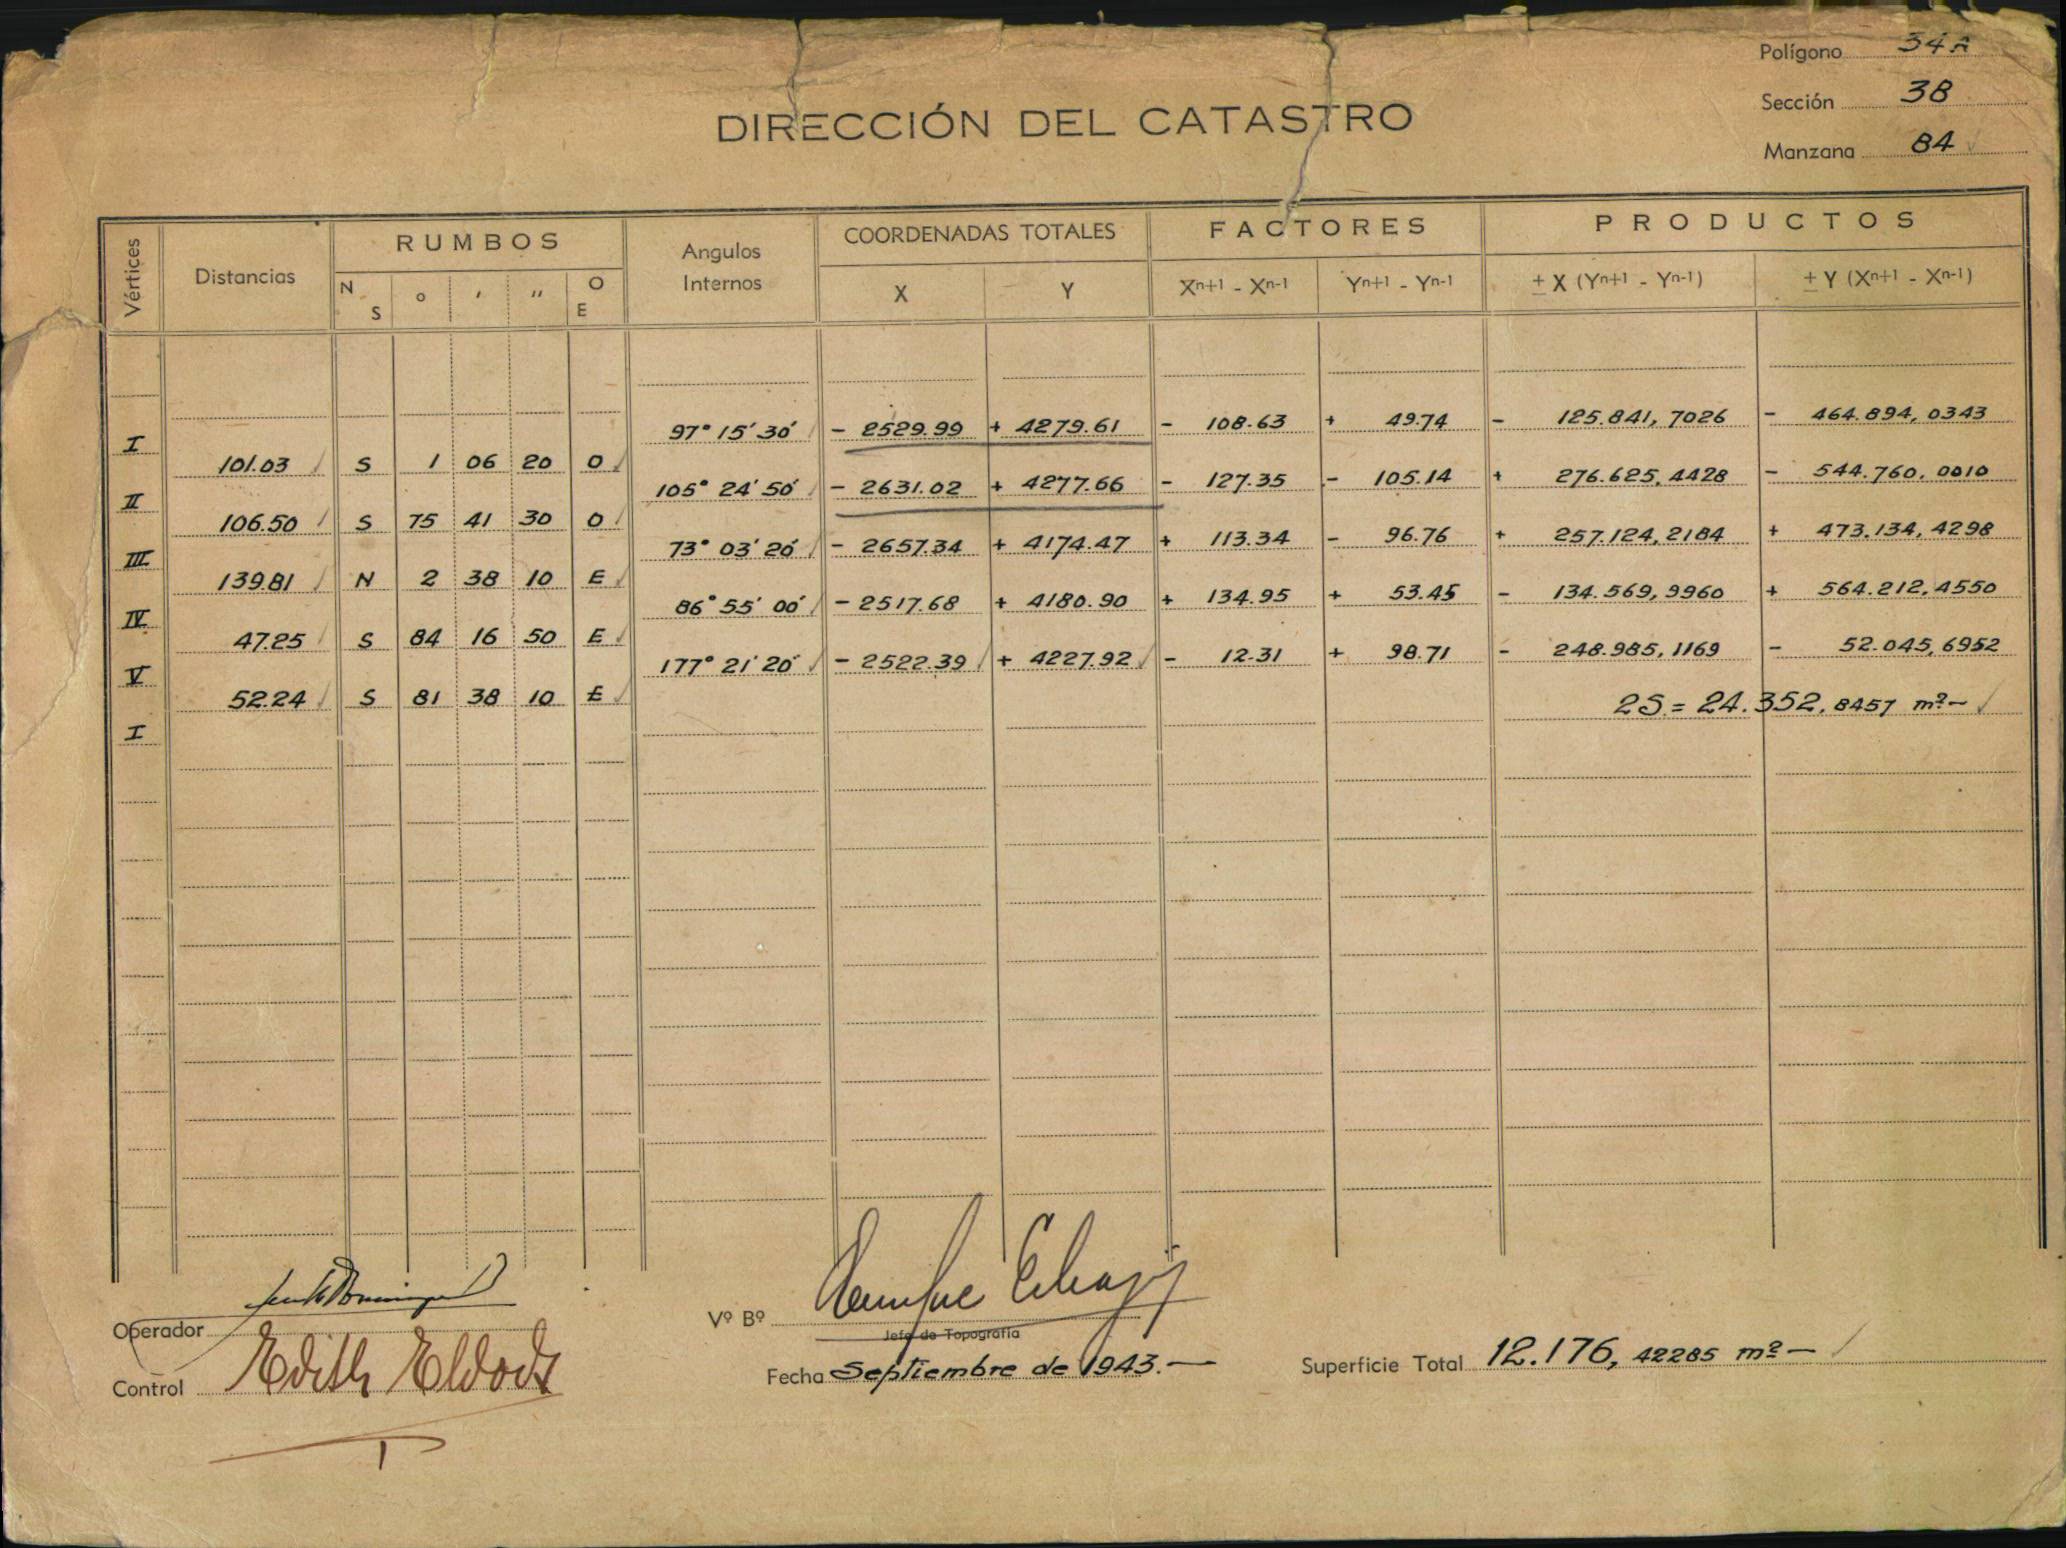 Polígono 34 A
Sección 38
Manzana 84
DIRECCIÓN DEL CATASTRO
Vértices Distancias RUMBOS Angulos Internos COORDENADAS TOTALES FACTORES PRODUCTOS
N S ° ' '' O E X Y Xn+1 - Xn-1 Yn+1 - Yn-1 ± X (Yn+1 - Yn-1) ± Y (Xn+1 - Xn-1)
I 97° 15' 30'' - 2529.99 + 4279.61 - 108.63 + 49.74 - 125.841,7026 - 464.894,0343
101.03 S 1 06 20 O
II 105° 24' 50'' - 2631.02 + 4277.66 - 127.35 - 105.14 + 276.625,4428 - 544.760,0010
106.50 S 75 41 30 O
III 73° 03' 20'' - 2657.34 + 4174.47 + 113.34 - 96.76 + 257.124,2184 + 473.134,4298
139.81 N 2 38 10 E
IV 86° 55' 00'' - 2517.68 + 4180.90 + 134.95 + 53.45 - 134.569,9960 + 564.212,4550
47.25 S 84 16 50 E
V 177° 21' 20'' - 2522.39 + 4227.92 - 12.31 + 98.71 - 248.985,1169 - 52.045,6952
52.24 S 81 38 10 E
2S = 24.352,8457 m²-
I
Operador
Vº Bº
Jefe de Topografía
Control Edith
Fecha Septiembre de 1943.-
Superficie Total 12.176,42285 m²-